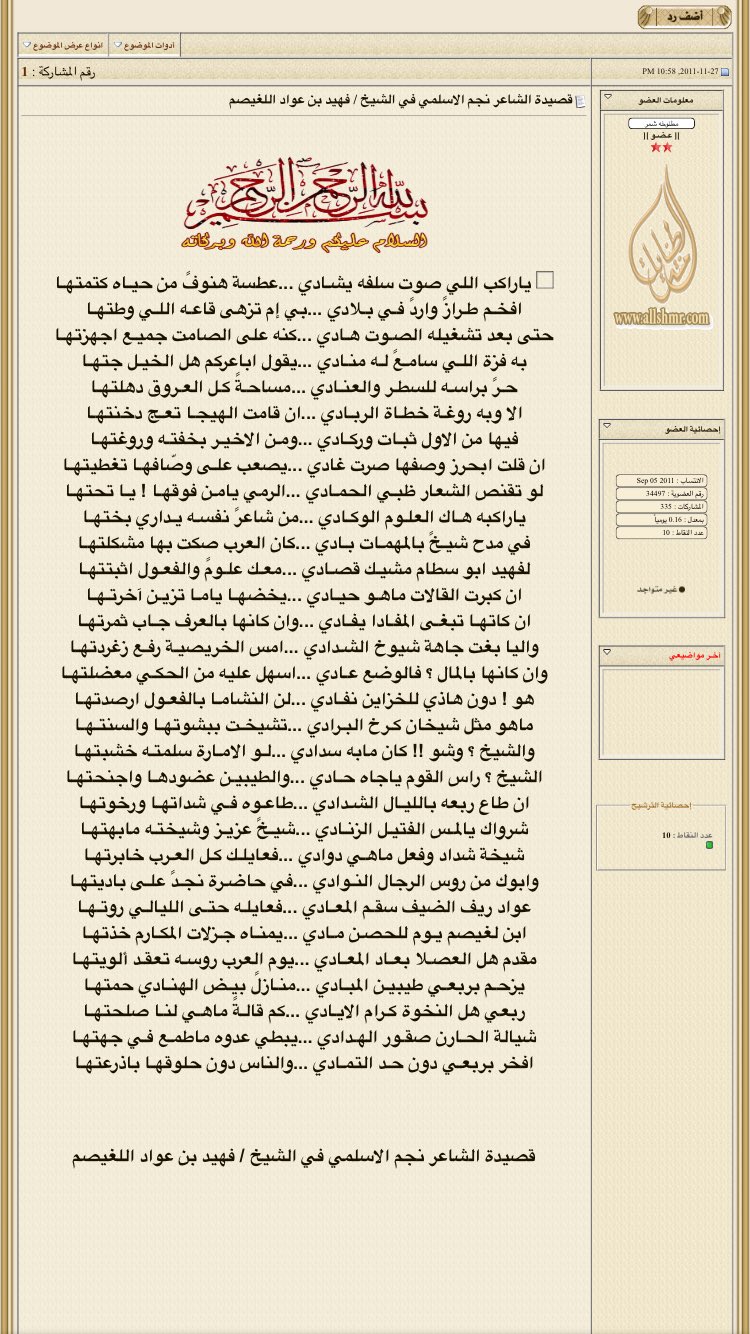 أضف رد
أدوات الموضوع
انواع عرض الموضوع
2011-11-27, 10:58 PM
رقم المشاركة : 1
معلومات العضو
مطنوخه شمر
|| عضو ||
www.allshmr.com
إحصائية العضو
الانتساب : Sep 05 2011
رقم العضوية : 34497
المشاركات : 335
بمعدل : 0.16 يومياً
عدد النقاط : 10
غير متواجد
آخر مواضيعي
إحصائية الترشيح
عدد النقاط : 10
قصيدة الشاعر نجم الاسلمي في الشيخ / فهيد بن عواد اللغيصم
بسم الله الرحمن الرحيم
السلام عليكم ورحمة الله وبركاته
ياراكب اللي صوت سلفه يشادي ...عطسة هنوفً من حياه كتمتها
افخم طرازً واردً في بلادي ...بي إم تزهى قاعه اللي وطتها
حتى بعد تشغيله الصوت هادي ...كنه على الصامت جميع اجهزتها
به فزة اللي سامعً له منادي ...يقول اباعركم هل الخيل جتها
حرً براسه للسطر والعنادي ...مساحةً كل العروق دهلتها
الا وبه روغة خطاة الربادي ...ان قامت الهيجا تعج دخنتها
فيها من الاول ثبات وركادي ...ومن الاخير بخفته وروغتها
ان قلت ابحرز وصفها صرت غادي ...يصعب على وصّافها تغطيتها
لو تقنص الشعار ظبي الحمادي ...الرمي يامن فوقها ! يا تحتها
ياراكبه هاك العلوم الوكادي ...من شاعرً نفسه يداري بختها
في مدح شيخً بالمهمات بادي ...كان العرب صكت بها مشكلتها
لفهيد ابو سطام مشيك قصادي ...معك علومً والفعول اثبتتها
ان كبرت القالات ماهو حيادي ...يخضها ياما تزين آخرتها
ان كاتها تبغى المفادا يفادي ...وان كانها بالعرف جاب ثمرتها
واليا بغت جاهة شيوخ الشدادي ...امس الخريصية رفع زغردتها
وان كانها بالمال ؟ فالوضع عادي ...اسهل عليه من الحكي معضلتها
هو ! دون هاذي للخزاين نفادي ...لن النشاما بالفعول ارصدتها
ماهو مثل شيخان كرخ البرادي ...تشيخت ببشوتها والسنتها
والشيخ ؟ وشو !! كان مابه سدادي ...لو الامارة سلمته خشبتها
الشيخ ؟ راس القوم ياجاه حادي ...والطيبين عضودها واجنحتها
ان طاع ربعه بالليال الشدادي ...طاعوه في شداتها ورخوتها
شرواك يالمس الفتيل الزنادي ...شيخً عزيز وشيخته مابهتها
شيخة شداد وفعل ماهي دوادي ...فعايلك كل العرب خابرتها
وابوك من روس الرجال النوادي ...في حاضرة نجدً على باديتها
عواد ريف الضيف سقم المعادي ...فعايله حتى الليالي روتها
ابن لغيصم يوم للحصن مادي ...يمناه جزلات المكارم خذتها
مقدم هل العصلا بعاد المعادي ...يوم العرب روسه تعقد ألويتها
يزحم بربعي طيبين المبادي ...منازلً بيض الهنادي حمتها
ربعي هل النخوة كرام الايادي ...كم قالةً ماهي لنا صلحتها
شيالة الحارن صقور الهدادي ...يبطي عدوه ماطمع في جهتها
افخر بربعي دون حد التمادي ...والناس دون حلوقها باذرعتها
قصيدة الشاعر نجم الاسلمي في الشيخ / فهيد بن عواد اللغيصم